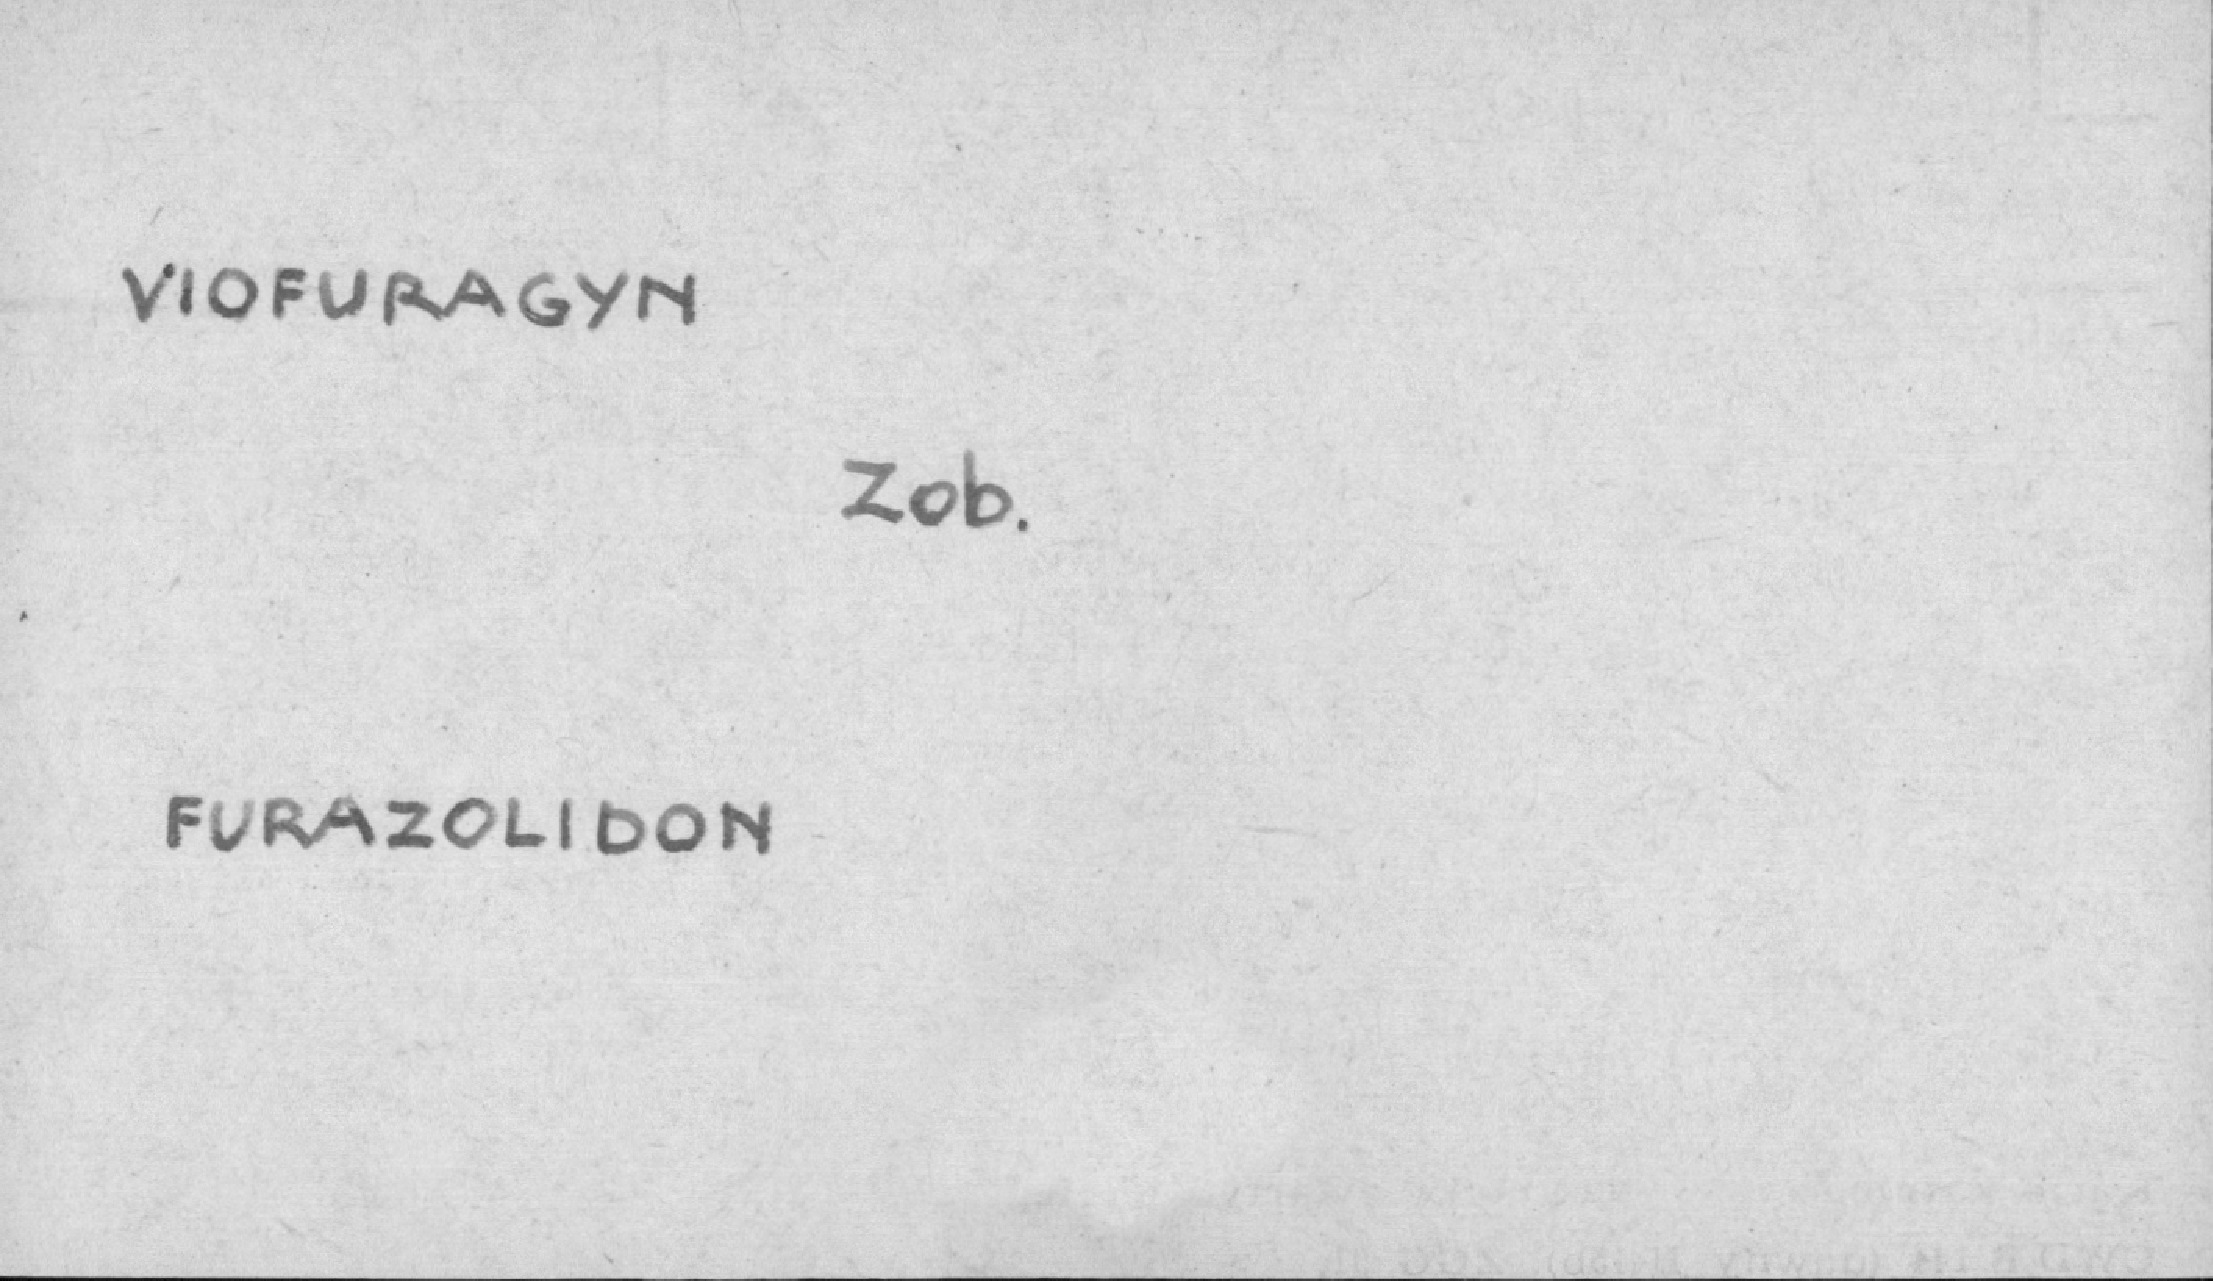 VIOFURAGYN
Zob.
FURAZOLIDON